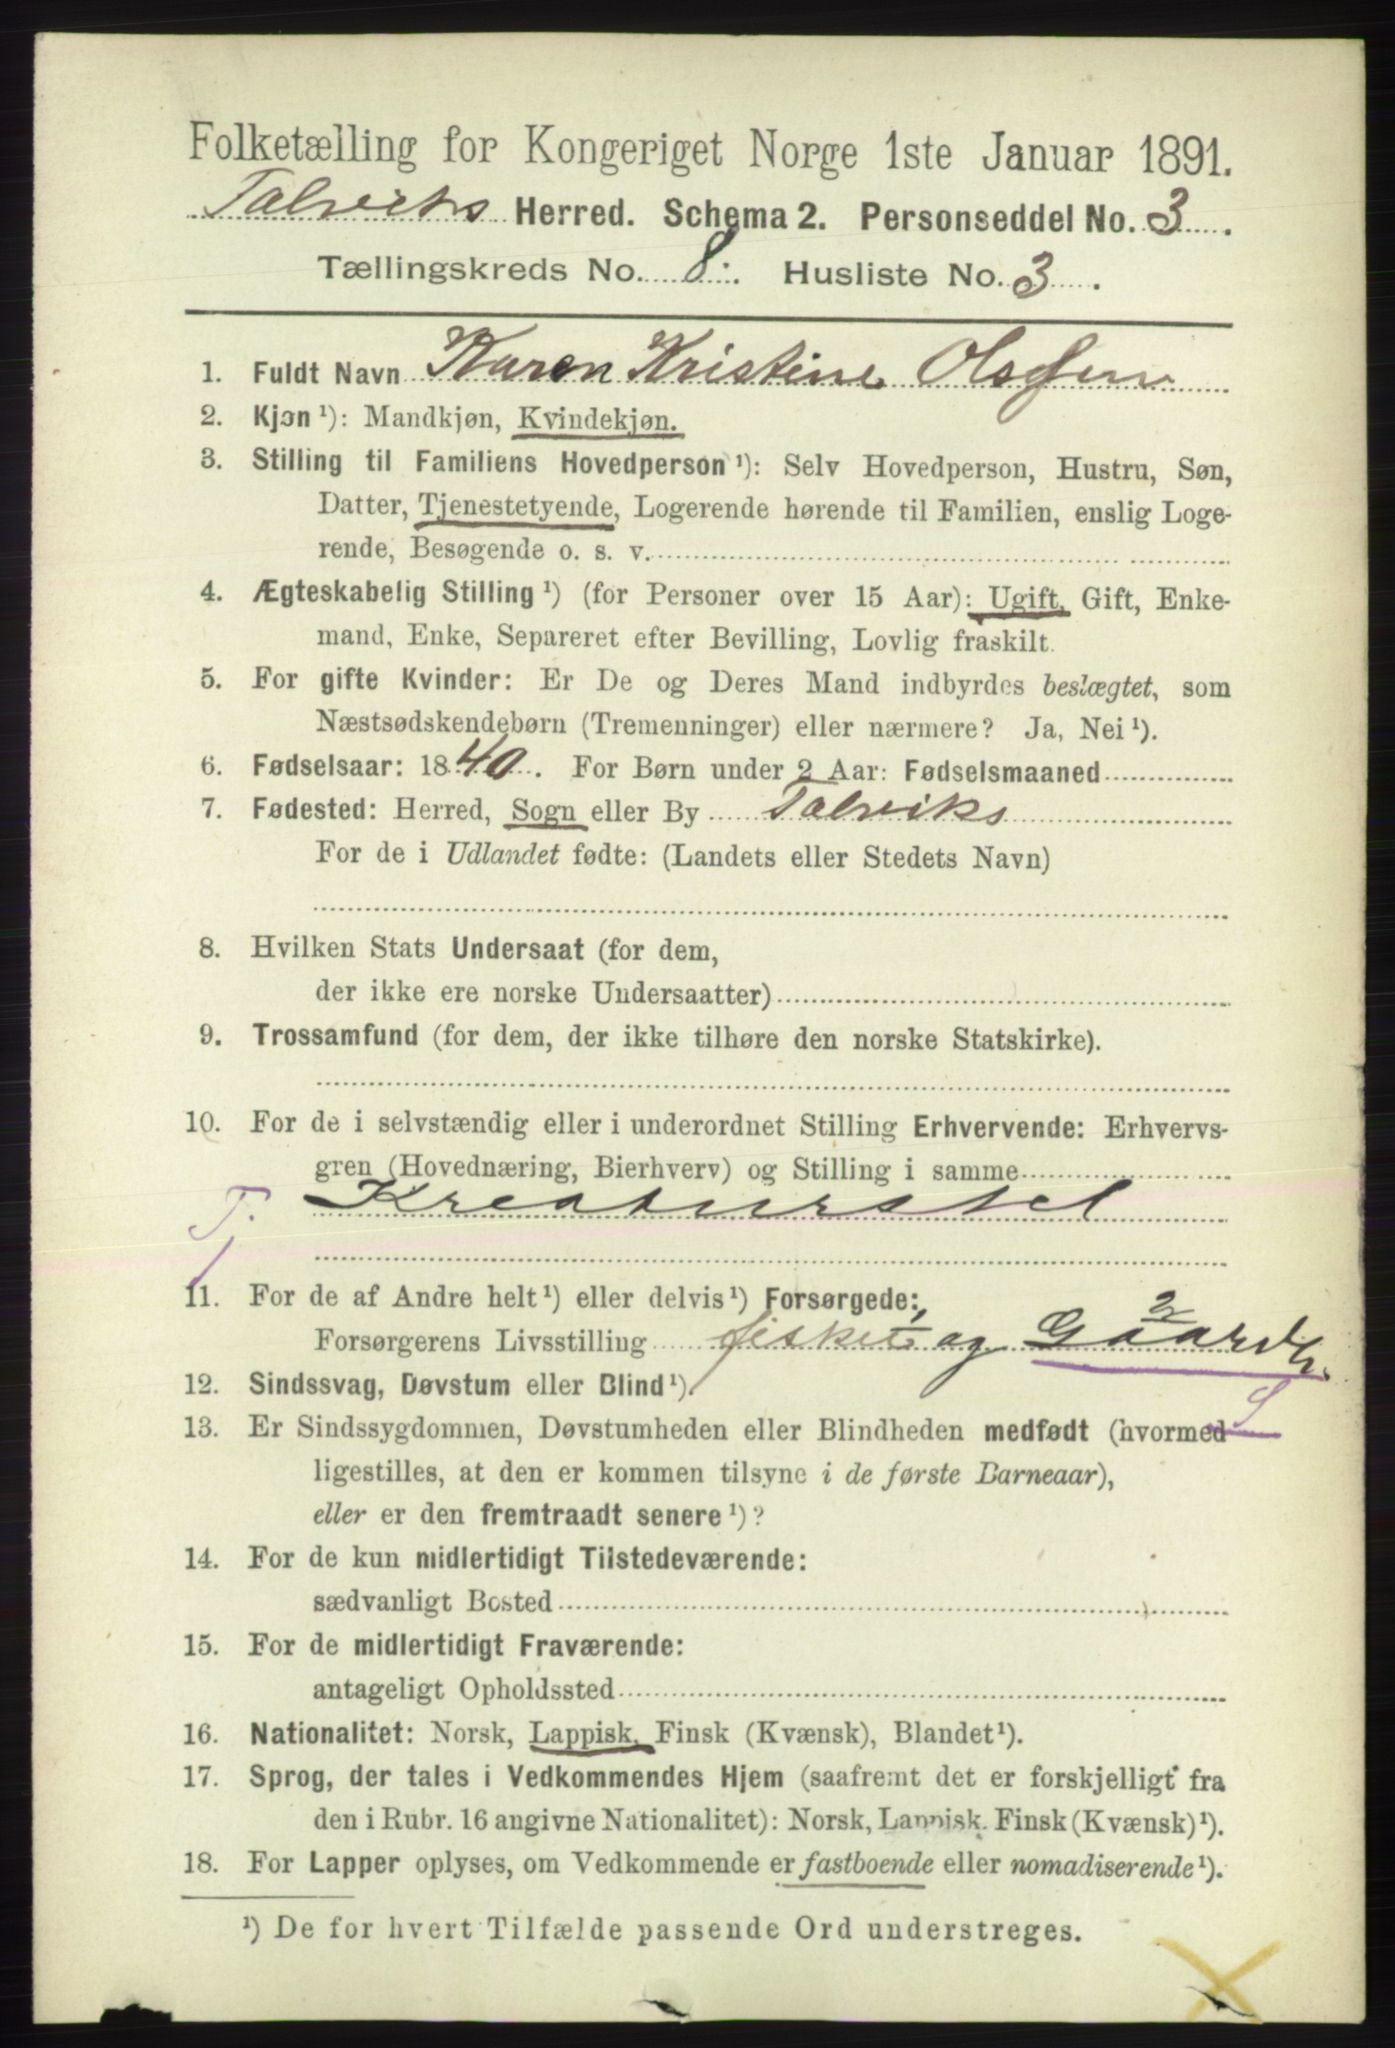 Folketælling for Kongeriget Norge 1ste Januar 1891.
Talviks Herred. Schema 2. Personseddel No. 3.
Tællingskreds No. 8. Husliste No. 3.
1. Fuldt Navn Karen Kristine Olsen
2. Kjøn ¹): Mandkjøn, Kvindekjøn.
3. Stilling til Familiens Hovedperson ¹): Selv Hovedperson, Hustru, Søn,
Datter, Tjenestetyende, Logerende hørende til Familien, enslig Loge-
rende, Besøgende o. s. v.
4. Ægteskabelig Stilling ¹) (for Personer over 15 Aar): Ugift, Gift, Enke-
mand, Enke, Separeret efter Bevilling, Lovlig fraskilt.
5. For gifte Kvinder: Er De og Deres Mand indbyrdes beslægtet, som
Næstsødskendebørn (Tremenninger) eller nærmere? Ja, Nei ¹).
6. Fødselsaar: 1840. For Børn under 2 Aar: Fødselsmaaned
7. Fødested: Herred, Sogn eller By Talviks
For de i Udlandet fødte: (Landets eller Stedets Navn)
8. Hvilken Stats Undersaat (for dem,
der ikke ere norske Undersaatter)
9. Trossamfund (for dem, der ikke tilhøre den norske Statskirke).
10. For de i selvstændig eller i underordnet Stilling Erhvervende: Erhvervs-
gren (Hovednæring, Bierhverv) og Stilling i samme
T. Kreaturstel
11. For de af Andre helt ¹) eller delvis ¹) Forsørgede:
2
Forsørgerens Livsstilling fisker og Gaardbr.
12. Sindssvag, Døvstum eller Blind ¹).
S
13. Er Sindssygdommen, Døvstumheden eller Blindheden medfødt (hvormed
ligestilles, at den er kommen tilsyne i de første Barneaar),
eller er den fremtraadt senere ¹)?
14. For de kun midlertidigt Tilstedeværende:
sædvanligt Bosted
15. For de midlertidigt Fraværende:
antageligt Opholdssted
16. Nationalitet: Norsk, Lappisk, Finsk (Kvænsk), Blandet ¹).
17. Sprog, der tales i Vedkommendes Hjem (saafremt det er forskjelligt fra
den i Rubr. 16 angivne Nationalitet): Norsk, Lappisk. Finsk (Kvænsk) ¹).
18. For Lapper oplyses, om Vedkommende er fastboende eller nomadiserende ¹).
¹) De for hvert Tilfælde passende Ord understreges.